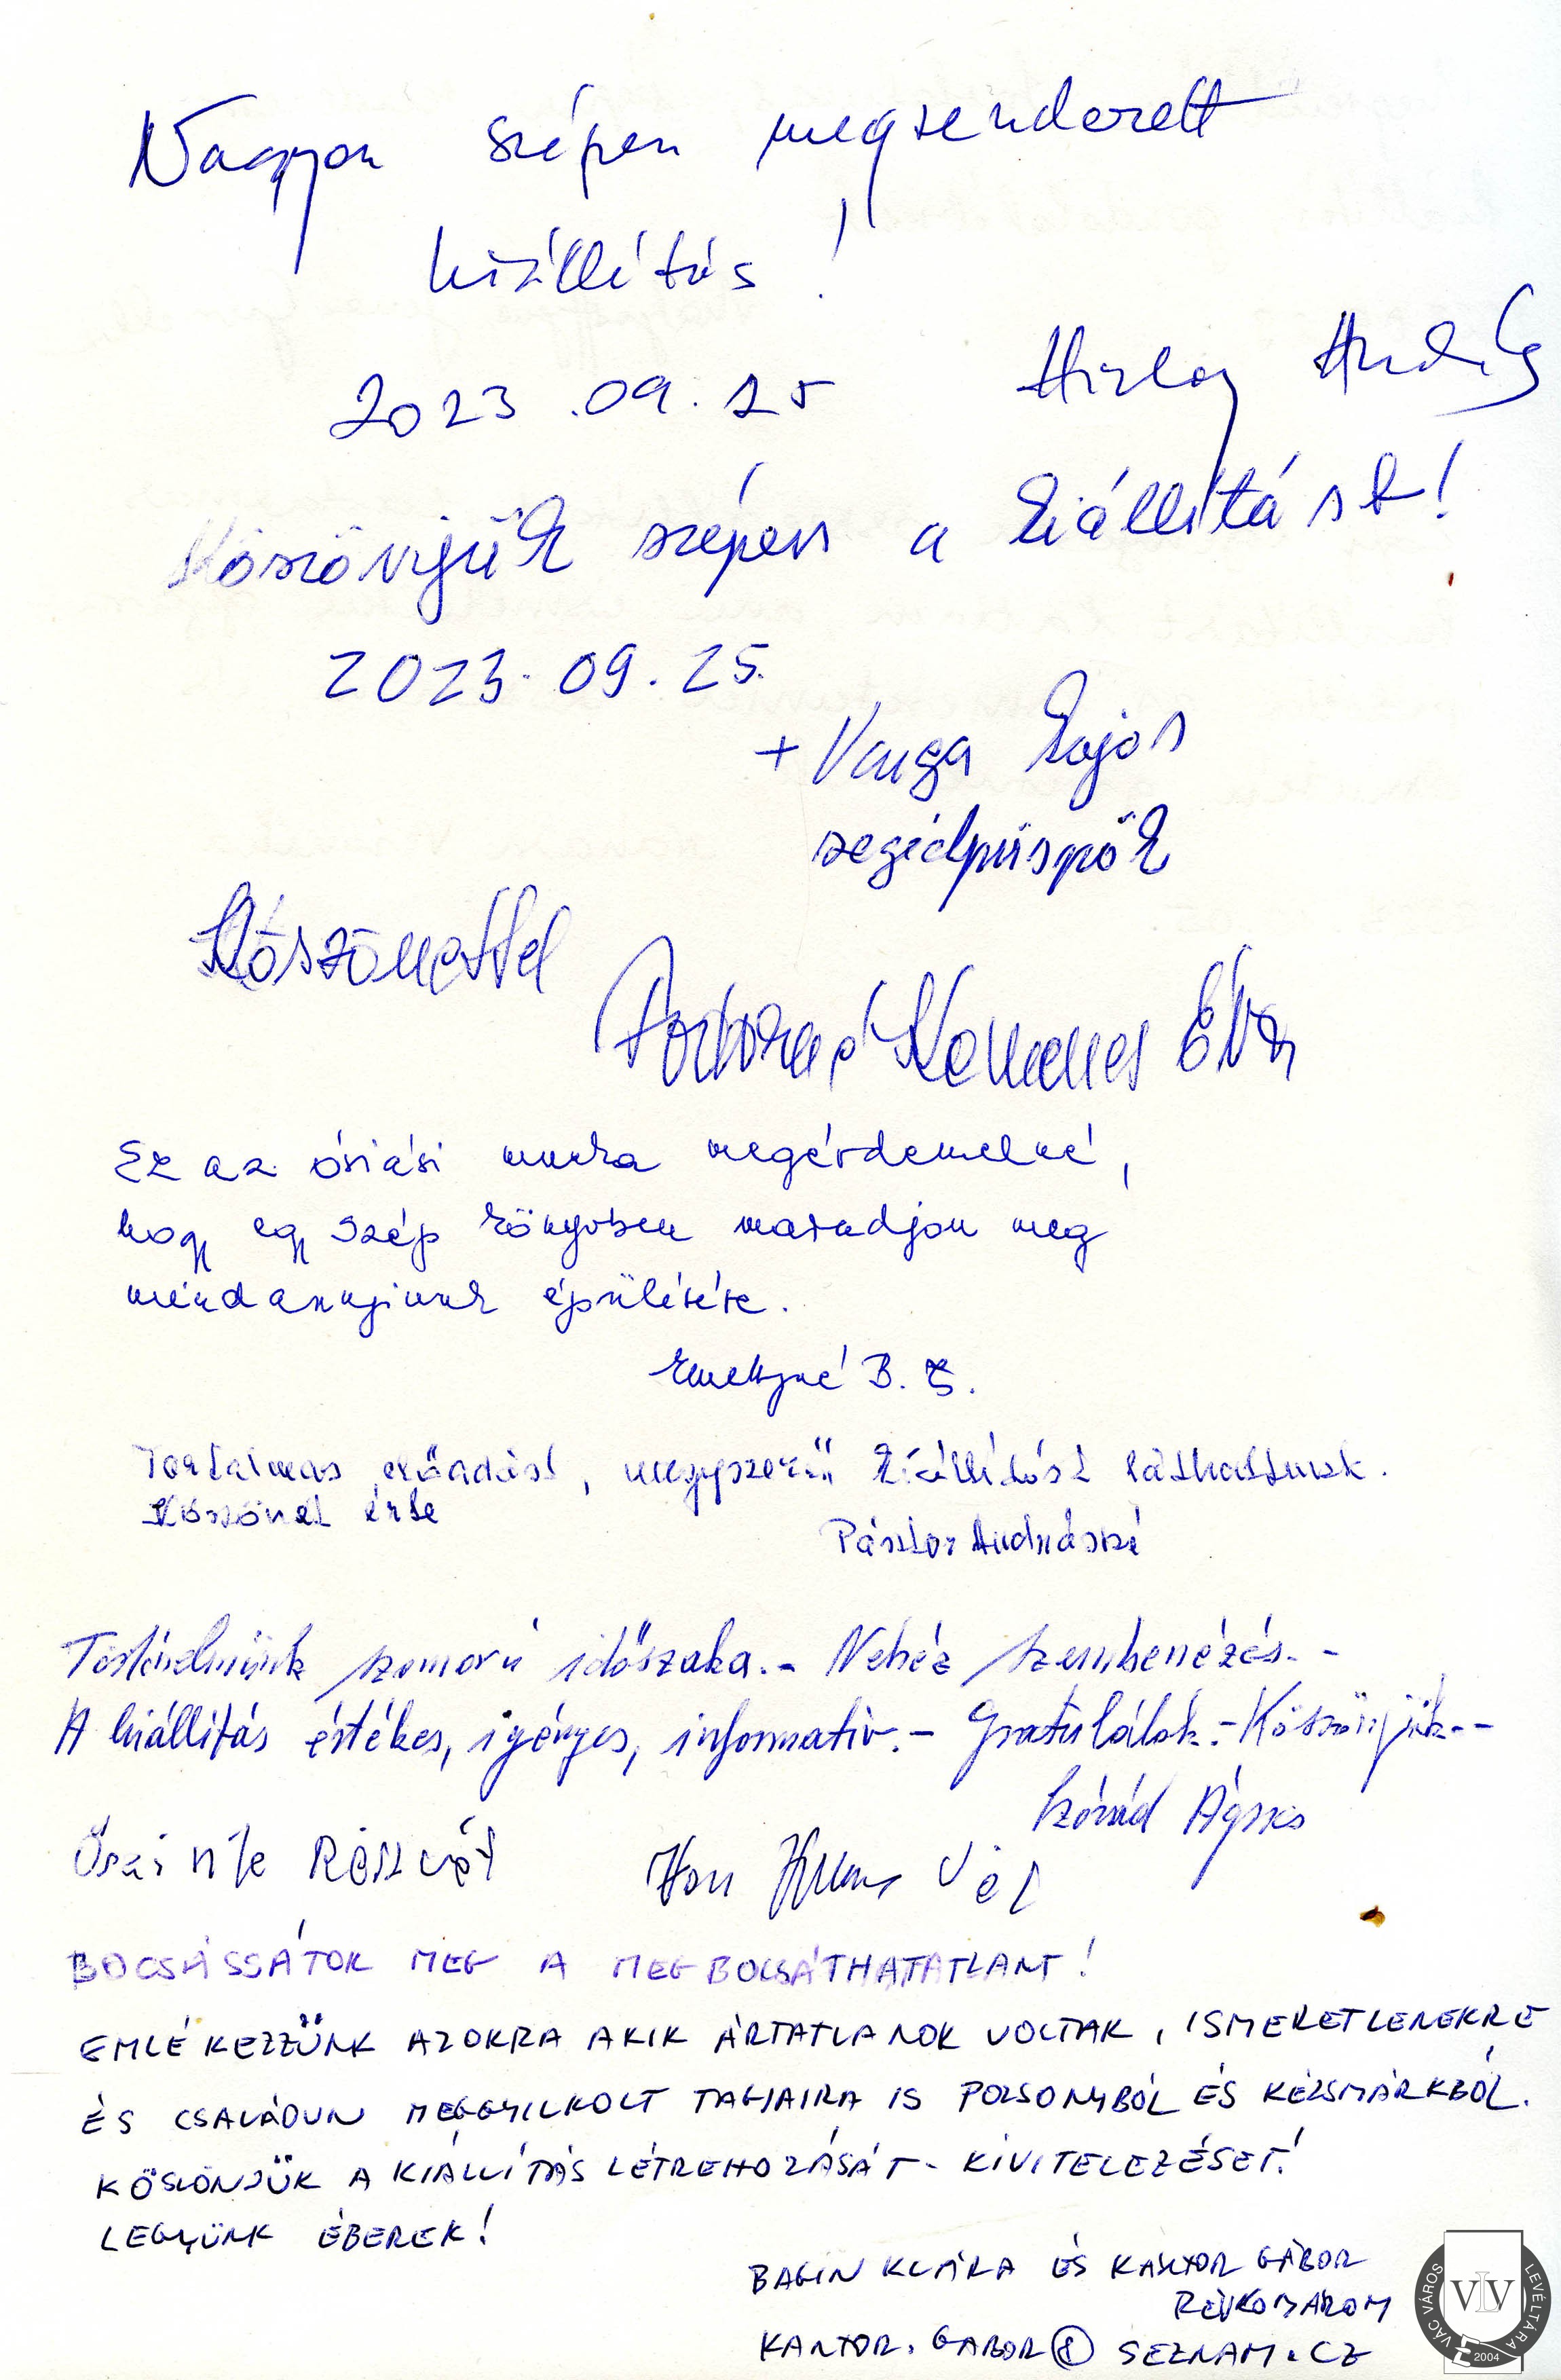 Nagyon szépen megrendezett
kiállítás!
2023.09.25
András
Köszönjük szépen a kiállítást!
2023.09.25.
+ Varga Lajos
segédpüspök
Köszönettel
Kemenes Éva
Ez az óriási munka megérdemelné,
hogy egy szép könyvben maradjon meg
mindannyiunk épülésére.
B. E.
Tartalmas előadást, nagyszerű kiállítást láthattunk.
Köszönet érte
Pásztor Andrásné
Történelmünk szomorú időszaka.- Nehéz szembenézés.-
A kiállítás értékes, igényes, informatív.- Gratulálok.- Köszönjük.-
Szórád Ágnes
Őszinte Részvét
BOCSÁSSÁTOK MEG A MEGBOCSÁTHATATLANT!
EMLÉKEZZÜNK AZOKRA AKIK ÁRTATLANOK VOLTAK, ISMERETLENEKRE
ÉS CSALÁDUN MEGGYILKOLT TAGJAIRA IS POZSONYBÓL ÉS KÉZSMÁRKBÓL.
KÖSZÖNJÜK A KIÁLLÍTÁS LÉTREHOZÁSÁT - KIVITELEZÉSÉT!
LEGYÜNK ÉBEREK!
BAGIN KLÁRA ÉS KÁNTOR GÁBOR
RÉVKOMÁROM
KANTOR.GABOR@SEZNAM.CZ
VÁC VÁROS LEVÉLTÁRA
VLV
2004